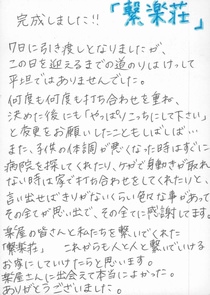 完成しました!!
「繋楽荘」
7日に引き渡しとなりましたが、
この日を迎えるまでの道のりはけっして
平坦ではありませんでした。
何度も何度も打ち合わせを重ね、
決めた後にも「やっぱりこっちにして下さい」
と変更をお願いしたこともしばしば…
また、子供の体調が悪くなった時はすぐに
病院を探してくれたり、ケガで身動きが取れ
ない時は家で打ち合わせをしてくれたりと、
言い出せばきりがないくらい色々な事があって
その全てが思い出で、その全てに感謝します。
楽屋の皆さんと私たちを繋いでくれた
「繋楽荘」 これからも人と人と繋いでいける
お家にしていけたらと思います。
楽屋さんに出会えて本当によかった。
ありがとうございました。